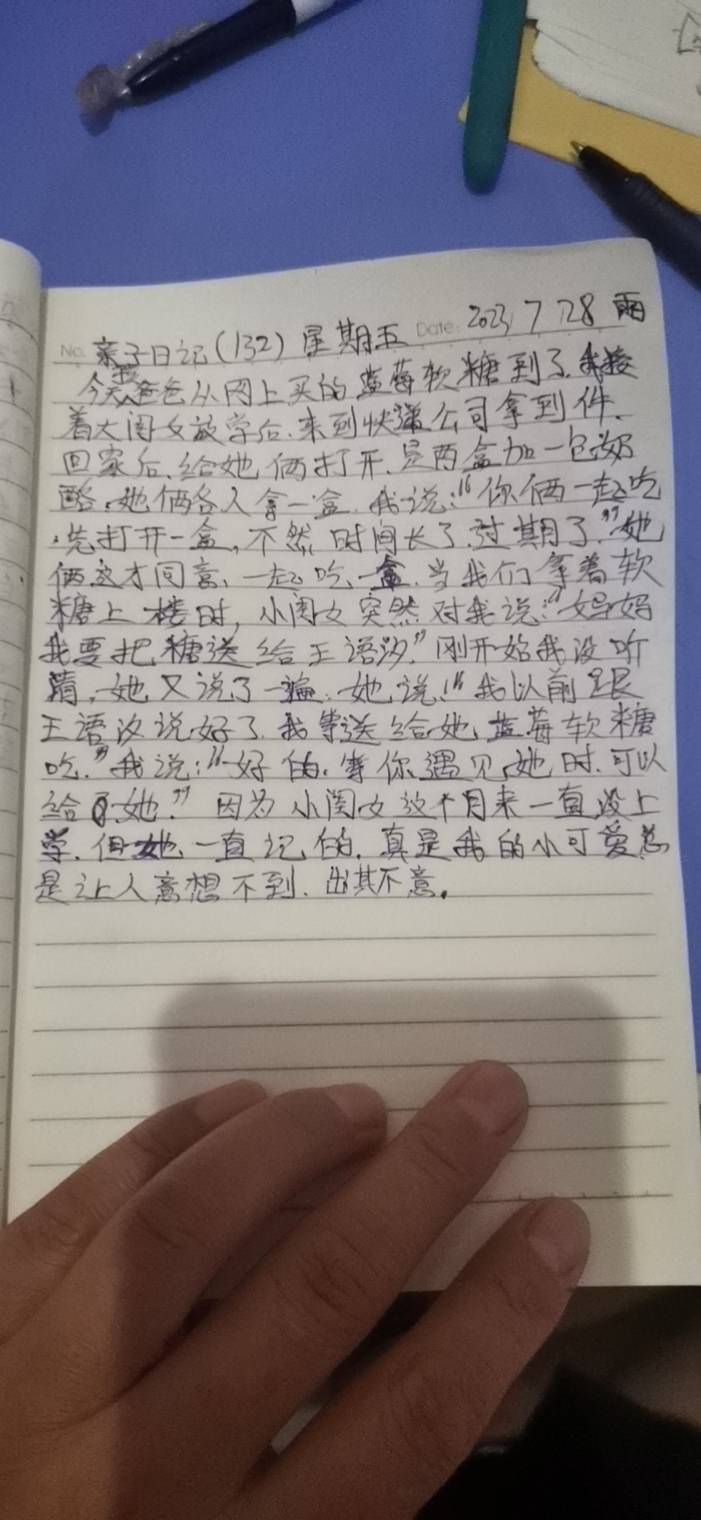 No. 亲子日记(132) 星期五 Date: 2023 7 28 雨
今天我爸爸从网上买的蓝莓软糖到了.我接
着大闺女放学后.来到快递公司拿到件.
回家后.给她俩打开.是两盒加一包奶
酪.她俩各人拿一盒.我说:“你俩一起吃
.先打开一盒,不然时间长了.过期了.”她
俩这才同意、一起吃一盒.当我们拿着软
糖上楼时,小闺女突然对我说:“妈妈
我要把糖送给王语汐.”刚开始我没听
清.她又说了一遍.她说:“我以前跟
王语汐说好了.我等送给她蓝莓软糖
吃.”我说:“好的.等你遇见她时.可以
给她.”因为小闺女这个月来一直没上
学.但她一直记的.真是我的小可爱总
是让人意想不到.出其不意.